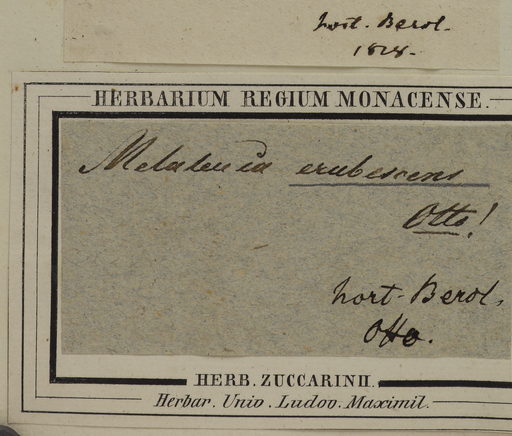 hort. Berol.
1828.
HERBARIUM REGIUM MONACENSE.
Melaleuca erubescens
Otto!
hort. Berol.
Otto.
HERB. ZUCCARINII.
Herbar. Univ. Ludov. Maximil.